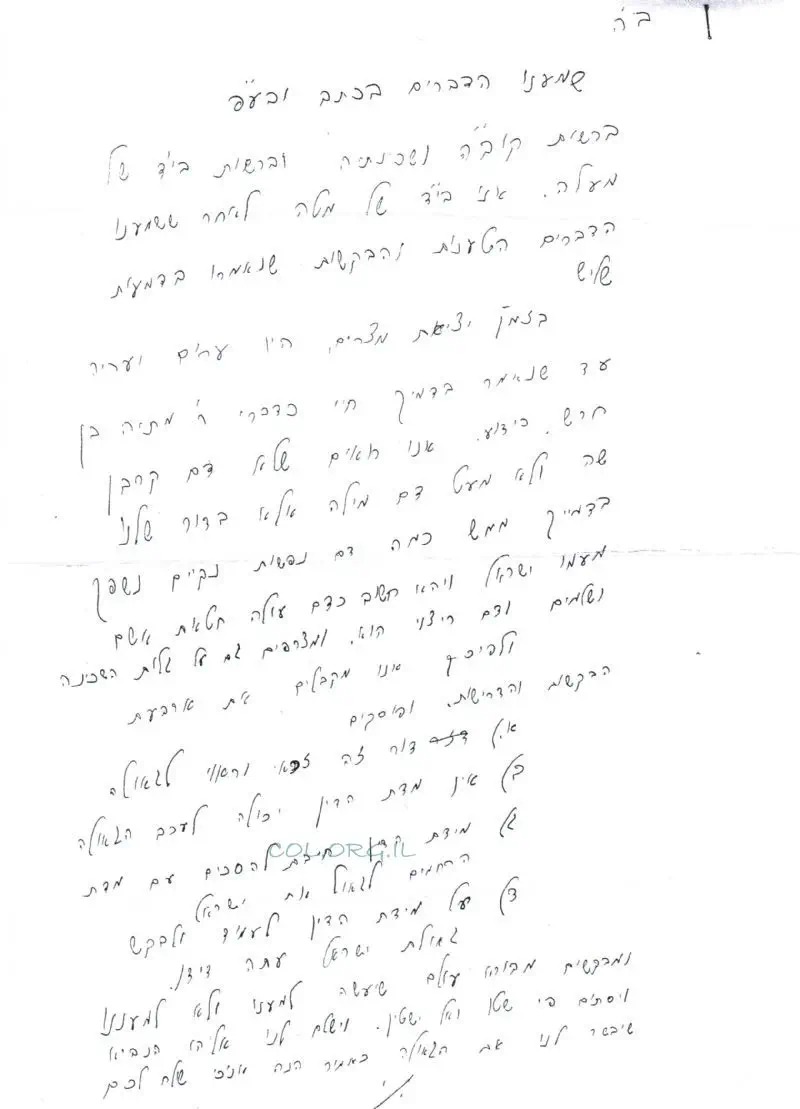 ב״ה
שמענו הדברים בכתב ובע״פ
ברשות קוב״ה ושכינתיה וברשות בי״ד של
מעלה. אנו בי״ד של מטה לאחר ששמענו
הדברים הטענות והבקשות שנאמרו בדמעות
שליש
בזמן יציאת מצרים, היו ערום ועריה
עד שנאמר בדמיך חיי כדברי ר' מתיה בן
חרש. כידוע. אנו רואים שלא דם קרבן
שה ולא מעט דם מילה אלא בדור שלנו
בדמייך ממש כמה דם נפשות נקיים נשפך
מעמו ישראל ויהא חשוב כדם עולה חטאת אשם
ושלמים ודם ריצוי הוא. ומצרפים גם על גלות השכינה
ולפיכך אנו מקבלים את ארבעת
הבקשות והדרישות. ופוסקים
א.) דור זה זכאי וראוי לגאולה
ב) אין מדת הדין יכולה לעכב הגאולה
ג) מידת חייבת להסכים עם מדת
COL.ORG.IL
הרחמים לגאול את ישראל
ד) על מידת הדין לעמוד ולבקש
גאולת ישראל עתה דידן.
ומבקשים מבורא עולם שיעשה למענו ולא למעננו
ויסתום פי שטן ואל ישטין. וישלח לנו אליהו הנביא
שיבשר לנו את הגאולה כאמור הנה אנכי שלח לכם